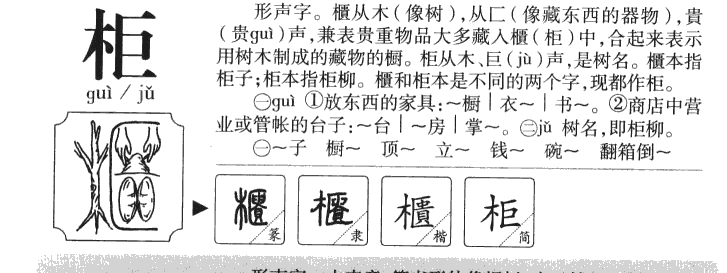 柜
guì / jǔ
形声字。櫃从木(像树),从匚(像藏东西的器物),貴
(贵guì)声,兼表贵重物品大多藏入櫃(柜)中,合起来表示
用树木制成的藏物的橱。柜从木、巨(jù)声,是树名。櫃本指
柜子;柜本指柜柳。櫃和柜本是不同的两个字,现都作柜。
㊀guì ①放东西的家具:～橱|衣～|书～。②商店中营
业或管帐的台子:～台|～房|掌～。㊁jǔ 树名,即柜柳。
㊀～子 橱～ 顶～ 立～ 钱～ 碗～ 翻箱倒～
櫃 篆 櫃 隶 櫃 楷 柜 简